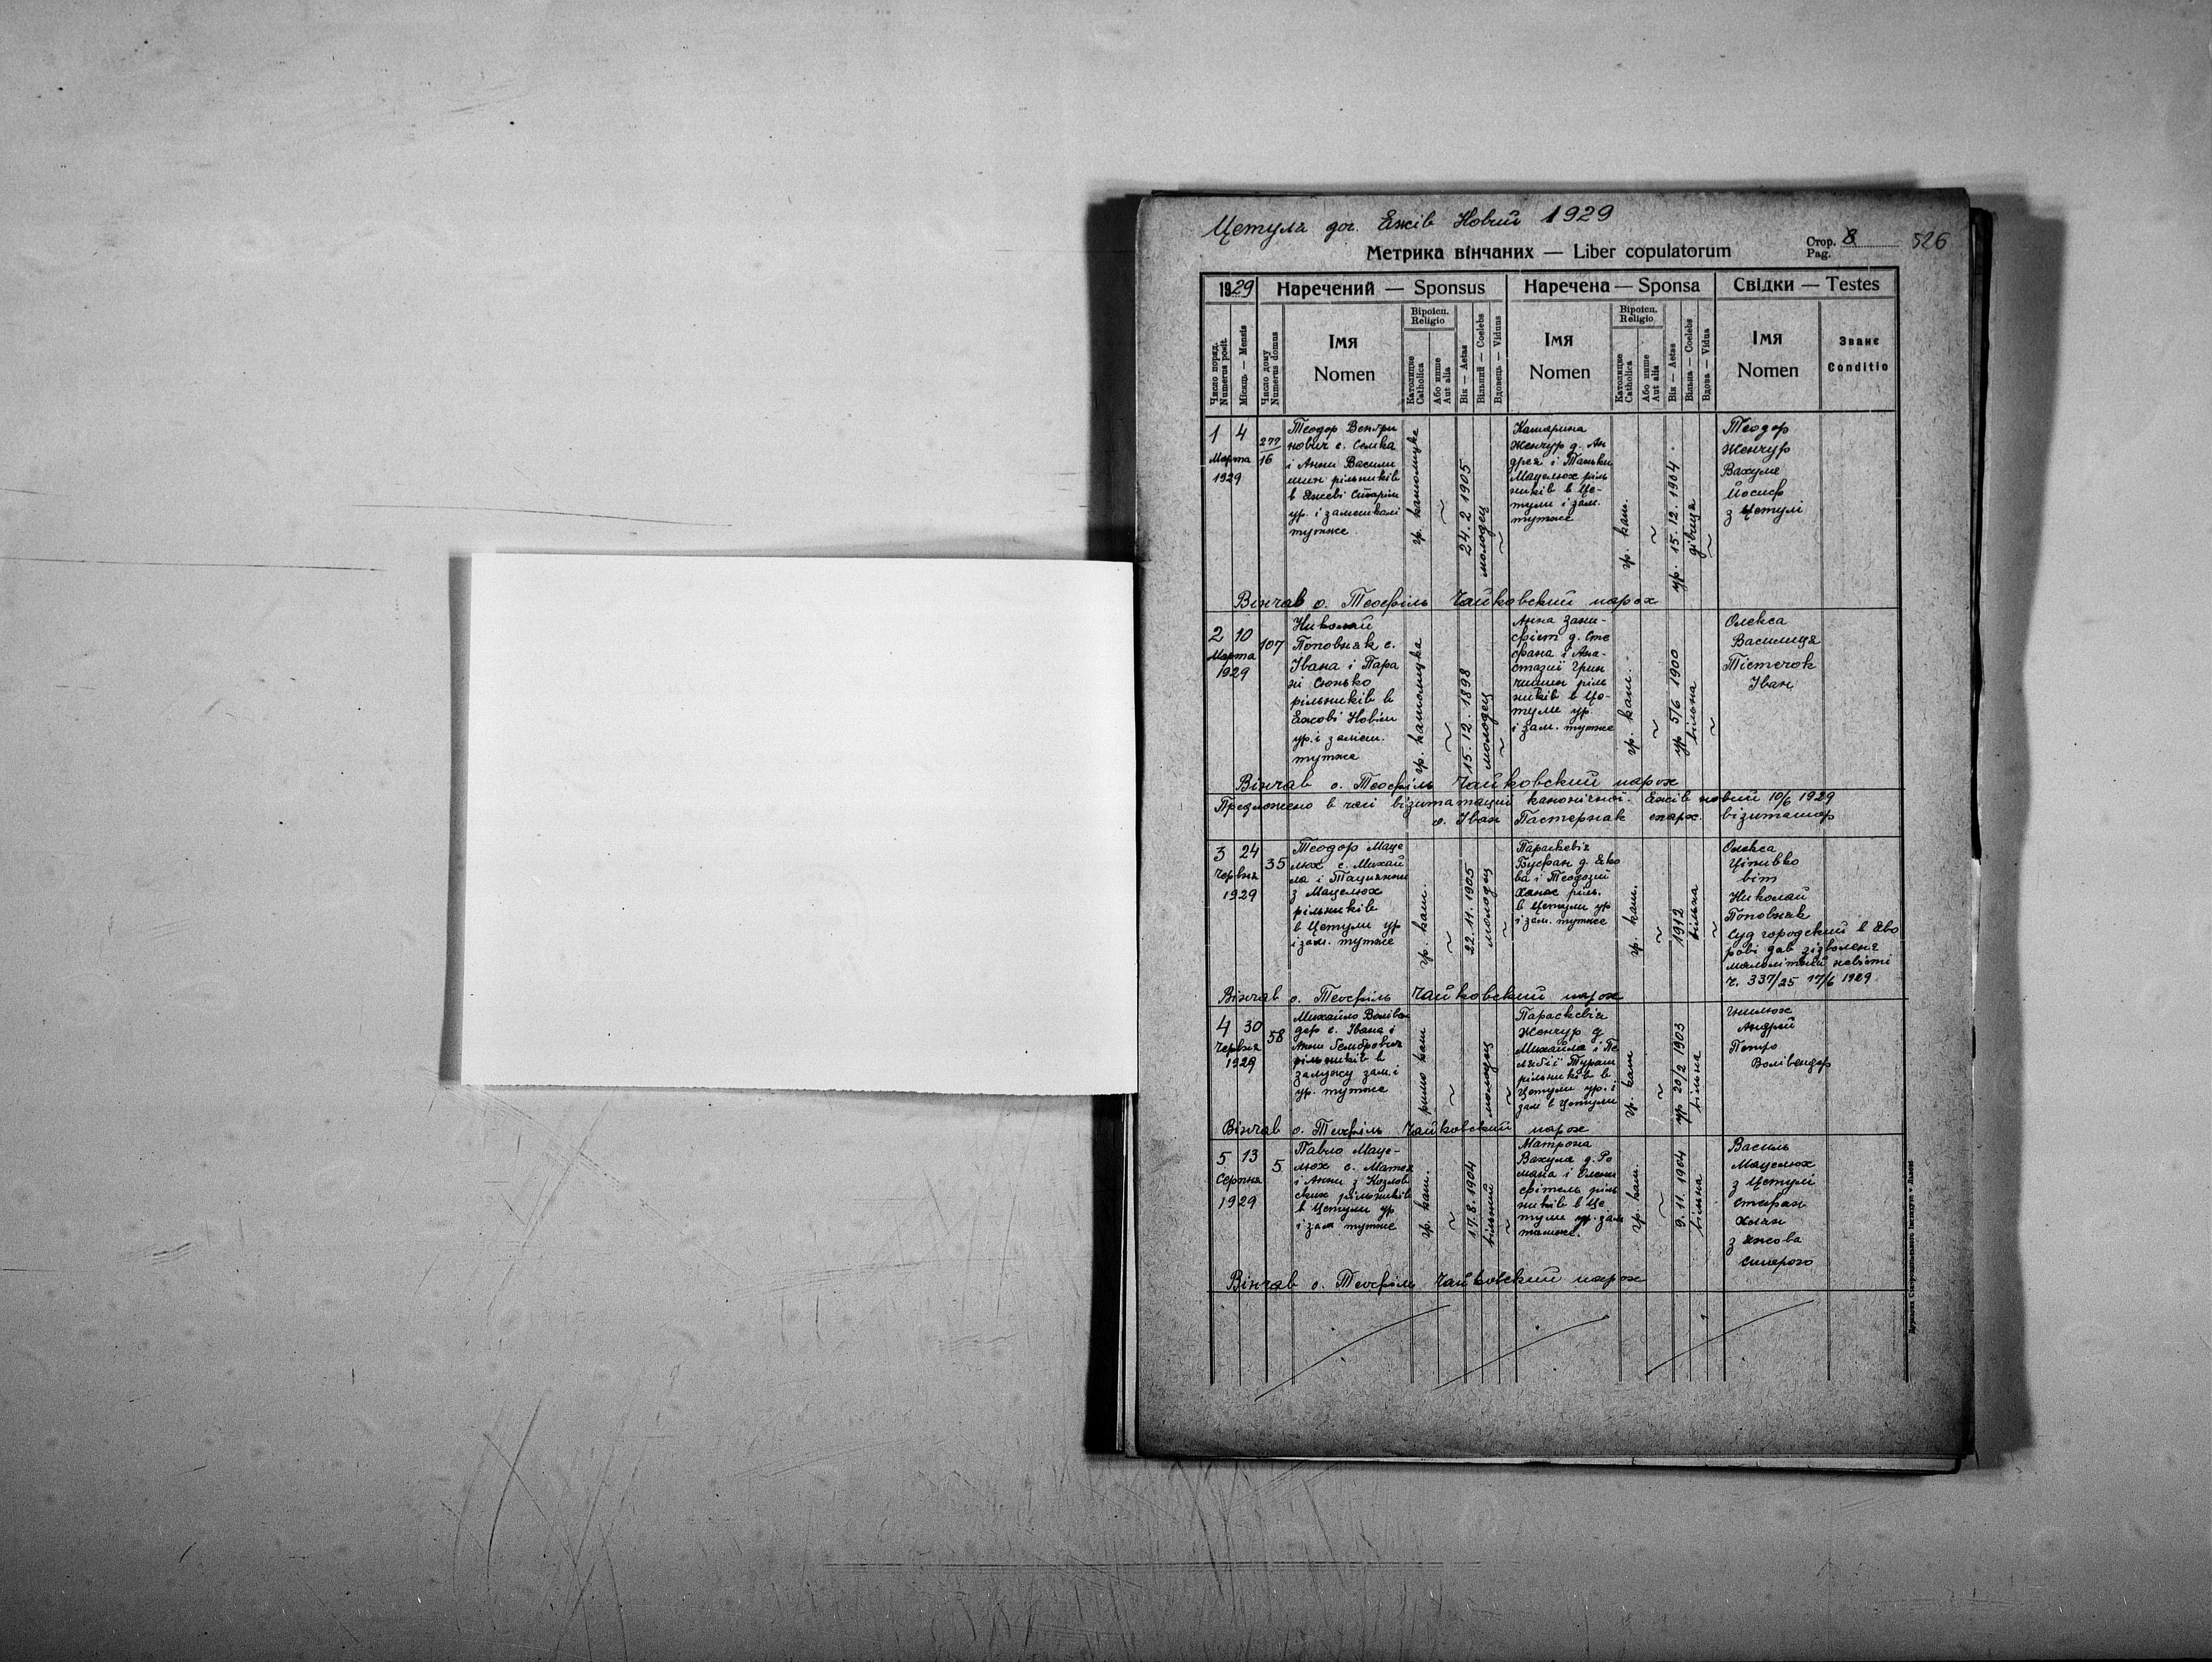 Цетуля дог. Ежів Новий 1929
Метрика вінчаних — Liber copulatorum
Стор. 8
Pag.
526
1929
Наречений — Sponsus
Наречена — Sponsa
Свідки — Testes
Число поряд.
Numerus posit.
Місяць — Mensis
Число дому
Numerus domus
Імя
Nomen
Віроісп.
Religio
Католицке
Catholica
Або инше
Aut alia
Вік — Aetas
Вільний — Coelebs
Вдовець — Viduus
Імя
Nomen
Віроісп.
Religio
Католицке
Catholica
Або инше
Aut alia
Вік — Aetas
Вільна — Coelebs
Вдова — Vidua
Імя
Nomen
Званє
Conditio
1 4
Марта
1929
277
16
Теодор Венгри
нович с. Семка
і Анни Васили
шин рільників
в Ежеві Старім
ур. і замешкалі
тутже
гр. католицке
24. 2 1905
молодец
Катарина
Женчур д. Ан
дрея і Таньки
Мацелюх ріль
ників в Це-
тули і зам.
тутже
гр. кат.
ур. 15. 12. 1904
дівиця
Теодор
Женчур
Вахула
Йосиф
з Цетулі
Вінчав о. Теофіль Чайковский парох
2 10
Марта
1929
107
Николай
Поповняк с.
Івана і Пара
ні Сюнько
рільників в
Ежові Новім
ур. і заміш.
тутже
гр. католицка
15. 12. 1898
молодец
Анна Зани-
сфіст д. Сте
фана і Ана-
стазиї Грин
чишин ріль
ників в Це-
тули ур.
і зам. тутже
гр. кат.
ур 5/6 1900
вільна
Олекса
Василиця
Тістечок
Іван
Вінчав о. Теофіль Чайковский парох
Предложено в часі візитатациї канонічної. Ежів новий 10/6 1929
о. Іван Пастернак епарх. візитатор
3 24
Червня
1929
35
Теодор Маце
люх с. Михай
ла і Тацияни
з Мацелюх
рільників
в Цетули ур
і зам. тутже
гр. кат.
22. 11. 1905
молодец
Параскевія
Бусфан д. Яко
ва і Теодозиї
Ханас ріль.
в Цетули ур
і зам. тутже
гр. кат.
1912
вільна
Олекса
Ціпивко
віт
Николай
Поповняк
Суд городский в Яво
рові дав зізволенє
малолітній невісті
ч. 337/25 17/6 1929
Вінчав о. Теофіль Чайковский парох
4 30
Червня
1929
58
Михайло Воліван
дер с. Івана і
Анни Гембрович
рільників в
Залужу зам. і
ур. тутже
римо кат
молодец
Параскевія
Женчур д
Михайла і Пе
лягії Тураш
рільників в
Цетули ур. і
зам в Цетули
гр. кат
ур 20/2 1903
вільна
Андрей
Петро
Волівандер
Вінчав о. Теофіль Чайковский парох
5 13
Серпня
1929
5
Павло Маце-
люх с. Матея
і Анни з Козлов
ских рільників
в Цетули ур
і зам тутже
гр. кат.
17. 8. 1904
вільний
Матрона
Вахула д. Ро
мана і Олени
сфітель ріль
ників в Це
тули ур. зам
тамже.
гр. кат.
9. 11. 1904
вільна
Василь
Мацелюх
з Цетулі
Стефан
Хлян
з Яжова
Старого
Вінчав о. Теофіль Чайковский парох
Друкарня Ставропигійського Інститута у Львові